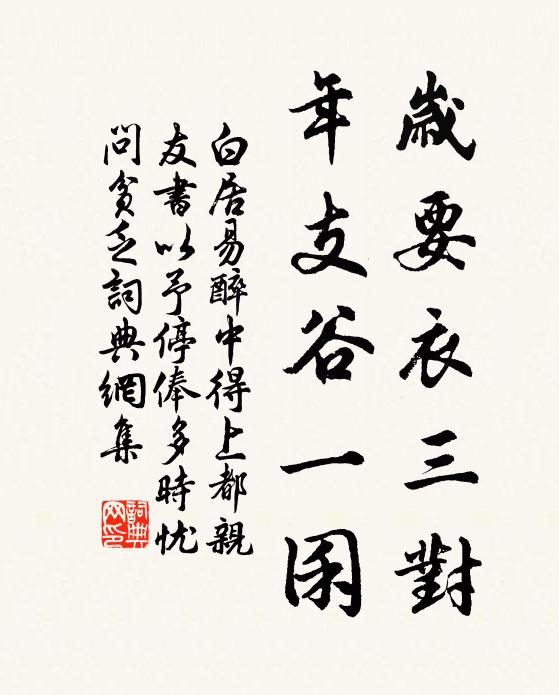 歲要衣三對
年支谷一囷
白居易醉中得上都親
友書以予停俸多時忧
問貧乏詞典網集
詞典网印